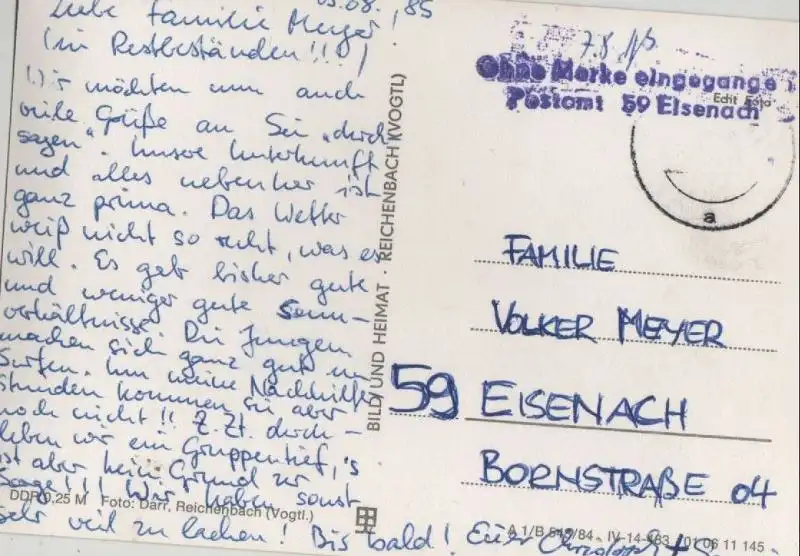 03.08.85
Liebe Familie Meyer!
(in Restbeständen!!!)
Wir möchten nun auch
viele Grüße an Sie „durch
sagen". Unsere Unterkunft
und alles nebenher ist
ganz prima. Das Wetter
weiß nicht so recht, was es
will. Es gab bisher gute
und weniger gute Sonn-
verhältnisse. Die Jungen
machen sich ganz gut im
Surfen. Um meine Nachhilfe
stunden kommen sie aber
noch nicht!! Z.Zt. durch-
leben wir ein Gruppentief, 's
ist aber kein Grund zur
Sorge!!! Wir haben sonst
sehr viel zu lachen! Bis bald! Euer
DDR 0,25 M Foto: Darr, Reichenbach (Vogtl.)
BILD UND HEIMAT · REICHENBACH (VOGTL)
7.8.
Ohne Marke eingegange
Postamt 59 Eisenach
Edit Foto
a
FAMILIE
VOLKER MEYER
59 EISENACH
BORNSTRAßE 04
A 1/B /84 IV-14-483 01 06 11 145